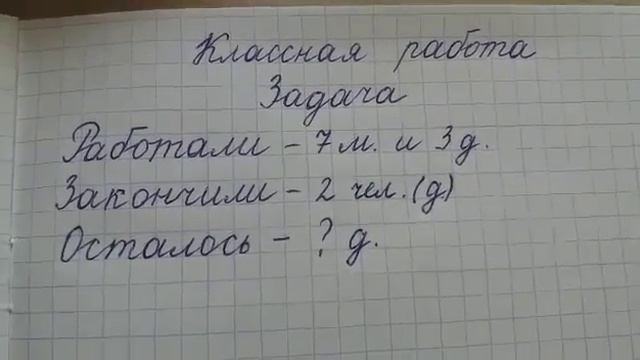 Классная работа
Задача
Работали - 7 м. и 3 д.
Закончили - 2 чел. (д)
Осталось - ? д.